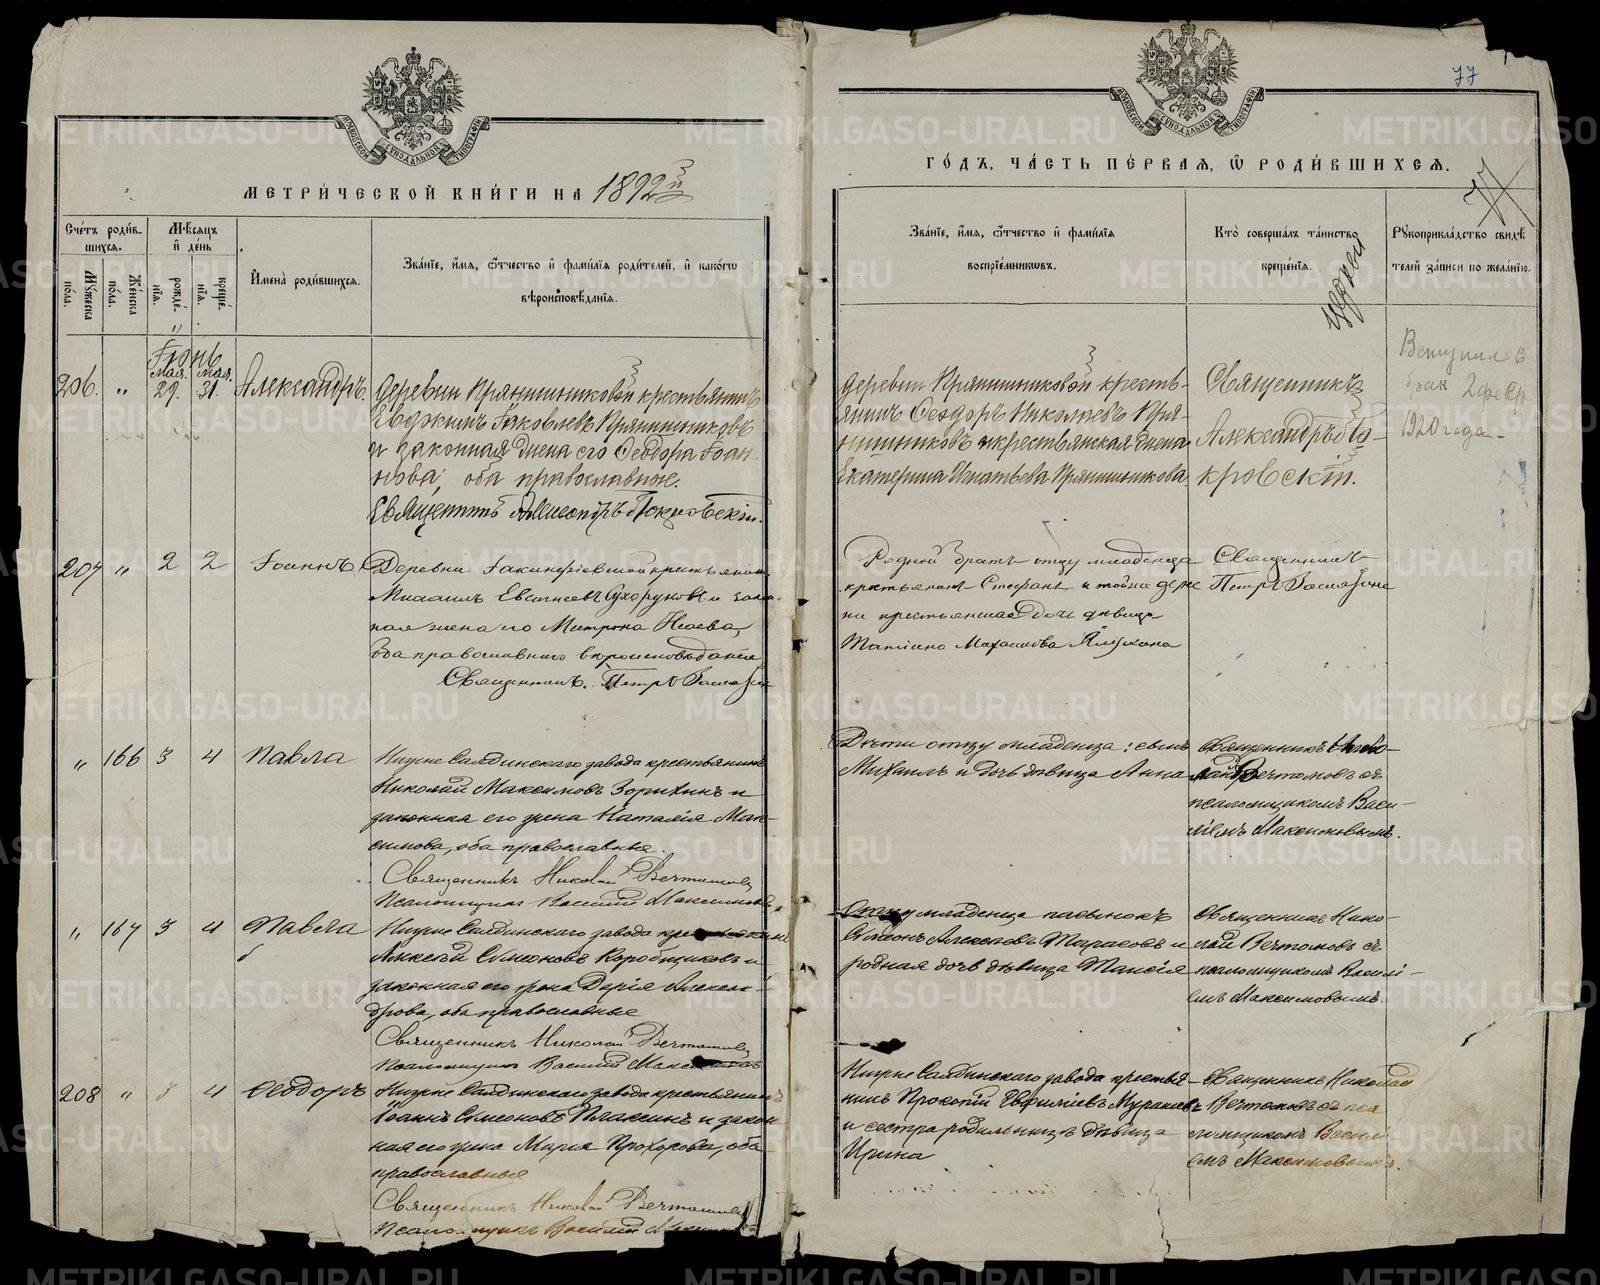 МЕТРИ́ЧЕСКОЙ КНИ́ГИ НА 1892й
Сче́тъ роди́в-
шихся.
Мꙋ́жеска
по́ла.
Же́нска
по́ла.
Мѣ́сяцъ
и҆ де́нь
рожде́-
нїѧ.
креще́-
нїѧ.
И҆мена̀ роди́вшихсѧ.
Зва́нїе, и҆́мѧ, ѻ҆́тчество и҆ фами́лїѧ роди́телей, и҆ како́гѡ
вѣроисповѣ́данїѧ.
206. " Мая 29. Мая 31. Александръ.
Деревни Прянишниковой крестьянинъ
Евдокимъ Іаковлевъ Прянишниковъ
и законная жена его Ѳеодора Іоан-
нова, оба православные.
Священникъ Александръ Покровскій.
207 " 2 2 Іоаннъ
Деревни крестьянинъ
Михаилъ Сухоруковъ и закон-
ная жена его Матрона
Оба православнаго вѣроисповѣданія
Священникъ Петръ
" 166 3 4 Павла
Нижне Салдинскаго завода крестьянинъ
Николай Максимовъ Зорихинъ и
законная его жена Наталія Мак-
симова, оба православные.
Священникъ Николай
Псаломщикъ Василій Максимовъ
" 167 3 4 Павла
Нижне Салдинскаго завода крестьянинъ
Алексѣй Симеоновъ Коробщиковъ и
законная его жена Дарія Алексан-
дрова, оба православные
Священникъ Николай
Псаломщикъ Василій Максимовъ
208 " 3 4 Ѳеодоръ
Нижне Салдинскаго завода крестьянинъ
Іоаннъ Симеоновъ Плаксинъ и закон-
ная его жена Марія Прохорова, оба
православные
Священникъ Николай
Псаломщикъ Василій
77
ГО́ДЪ, ЧА́СТЬ ПЕ́РВАЯ, Ѡ҆ РОДИ́ВШИХСЯ.
77
Зва́нїе, и҆́мѧ, ѻ҆́тчество и҆ фами́лїѧ
воспрїе́мниковъ.
Кто̀ соверша́лъ та́инство
креще́нїѧ.
Рꙋкоприкла́дство свидѣ́-
телей за́писи по жела́нїю.
деревни Прянишниковой кресть-
янинъ Ѳеодоръ Николаевъ Пря-
нишниковъ и крестьянская жена
Екатерина Игнатьева Прянишникова
Священникъ
Александръ По-
кровскій.
Вступил в
брак 2 февр
1920 года
Родной братъ отцу младенца
крестьянинъ Стефанъ и тойже дерев
ни крестьянская дочь дѣвица
Татіана
Священникъ
Петръ
Дѣти отцу младенца: сынъ
Михаилъ и дочь дѣвица Анна
Священникъ Нико-
лай съ
псаломщикомъ Васи-
ліемъ Максимовымъ.
Отцу младенца пасынокъ
Симеонъ Алексѣевъ Тарасовъ и
родная дочь дѣвица Таисія
Священникъ Нико-
лай съ
псаломщикомъ Василі-
емъ Максимовымъ.
Нижне Салдинскаго завода крестья-
нинъ Прокопій
и сестра родильницѣ дѣвица
Ирина
Священникъ Николай
съ пса
ломщикомъ Василі
емъ Максимовымъ.
METRIKI.GASO-URAL.RU